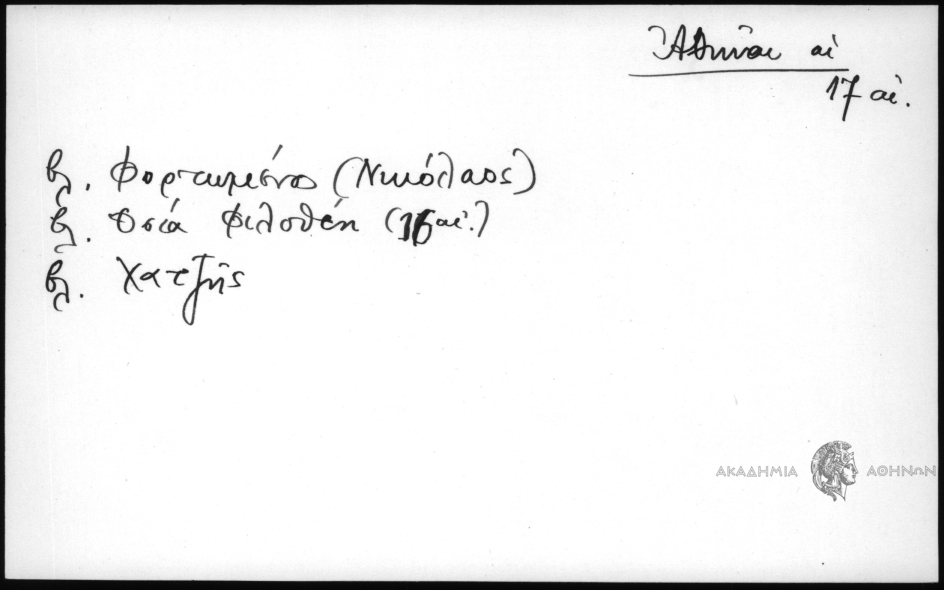 Ἀθῆναι αἱ
17 αἰ.
βλ. Φορτωμένος (Νικόλαος)
βλ. Ὁσία Φιλοθέη (16 αἰ.)
βλ. Χατζῆς
ΑΚΑΔΗΜΙΑ ΑΘΗΝΩΝ